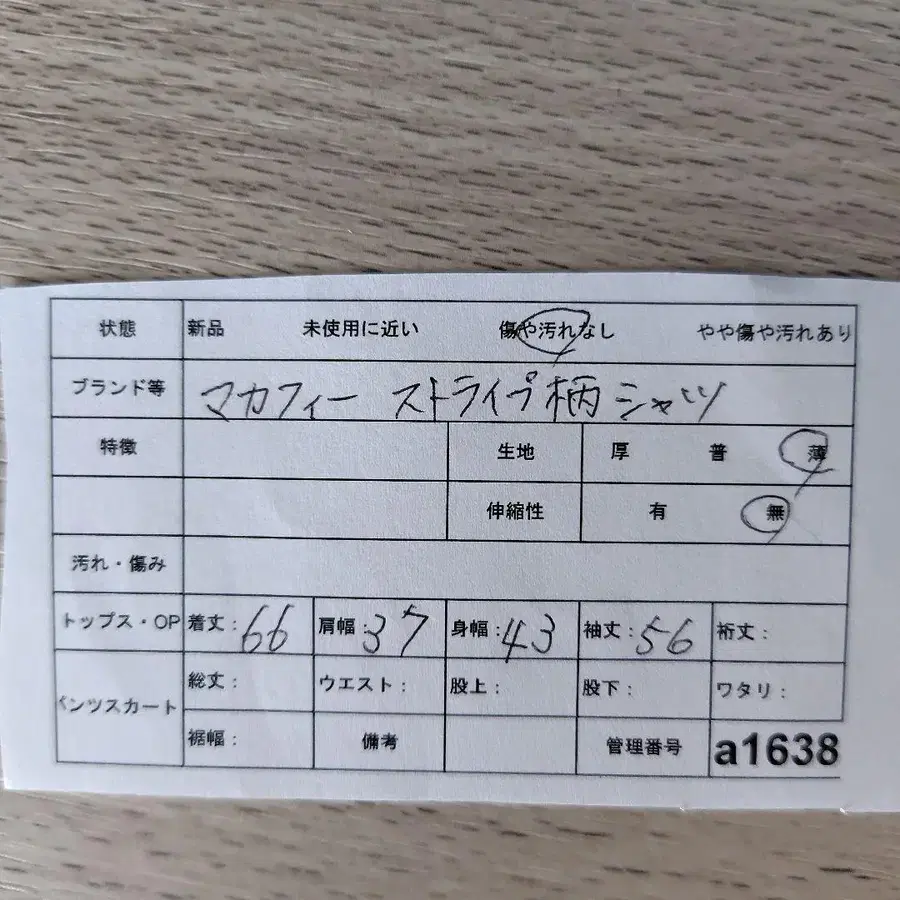 状態 新品 未使用に近い 傷や汚れなし やや傷や汚れあり
ブランド等 マカフィー ストライプ柄シャツ
特徴 生地 厚 普 薄
伸縮性 有 無
汚れ・傷み
トップス・OP 着丈：66 肩幅：37 身幅：43 袖丈：56 裄丈：
パンツスカート 総丈： ウエスト： 股上： 股下： ワタリ：
裾幅： 備考 管理番号 a1638